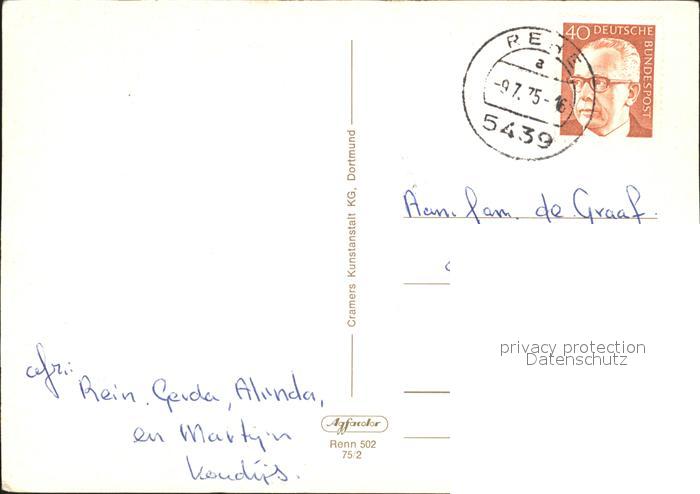 REHE
a
-9.7.75-16
5439
40 DEUTSCHE
BUNDESPOST
Aan. fam. de Graaf.
Cramers Kunstanstalt KG, Dortmund
privacy protection
Datenschutz
afz:
Rein, Gerda, Alinda,
en Martijn
Agfacolor
Renn 502
75/2